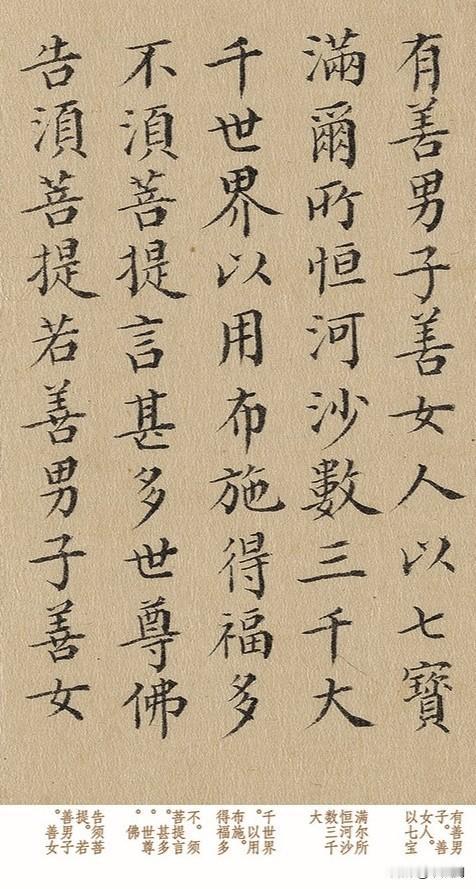 有善男子善女人以七寶
滿爾所恒河沙數三千大
千世界以用布施得福多
不須菩提言甚多世尊佛
告須菩提若善男子善女
有善男
子。善
女人。
以七宝
满尔所
恒河沙
数三千
大
千世界
。以用
布施。
得福多
不。须
菩提言
。甚多
。世尊
。佛
告须菩
提。若
善男子
。善女